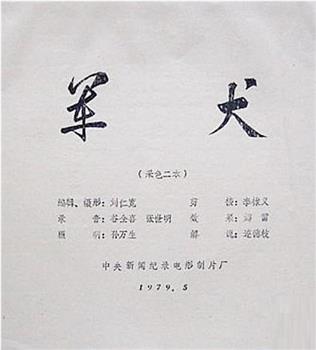 军犬
(彩色二本)
编辑、摄影: 刘仁宽 剪 接: 李振义
录 音: 谷全喜 张世明 效 果: 雷
照 明: 孙万生 解 说: 连德枝
中央新闻纪录电影制片厂
1979.5